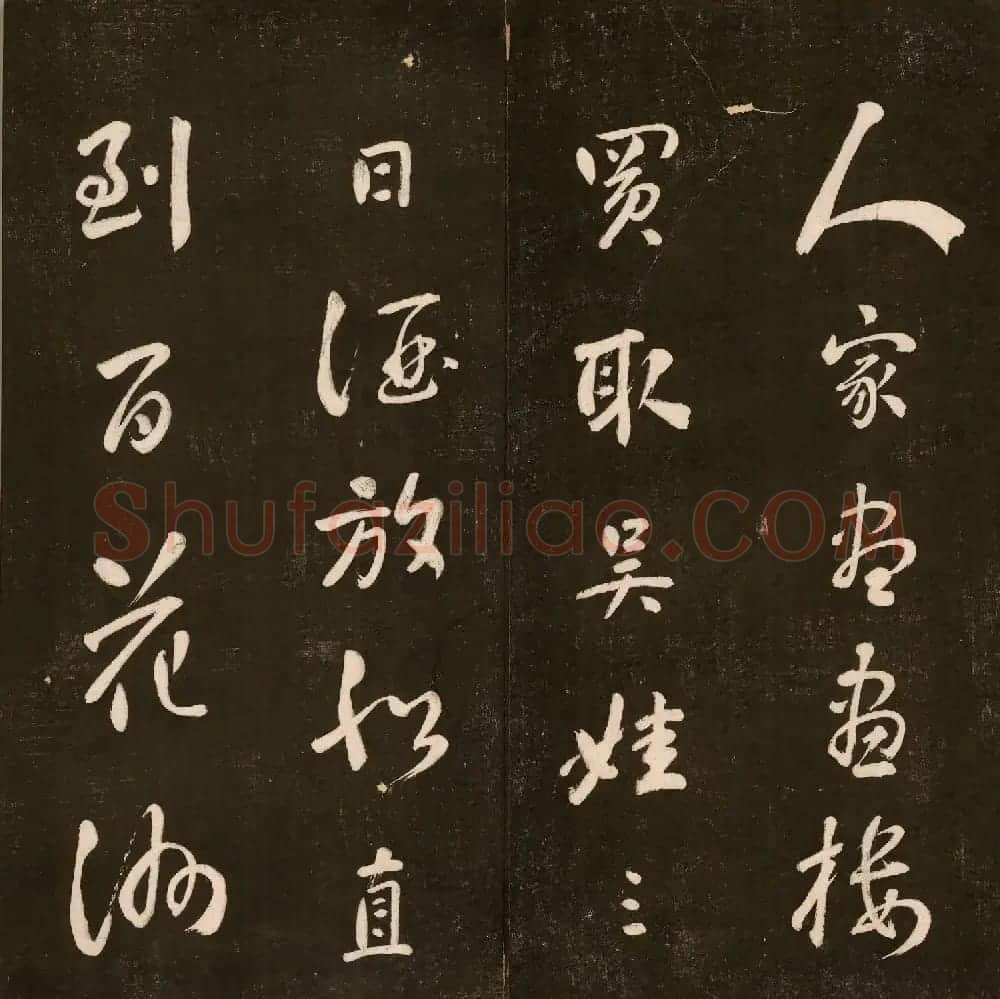 人家盡畫樓
買取吴娃三
日酒放船直
到百花洲
Shufaziliao.COM